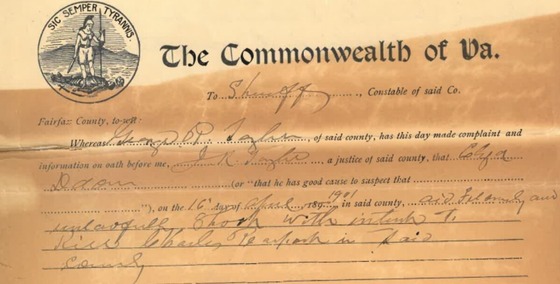 SIC SEMPER TYRANNIS.
The Commonwealth of Va.
To Sheriff, Constable of said Co.
Fairfax County, to-wit:
Whereas George R. Taylor, of said county, has this day made complaint and
information on oath before me, a justice of said county, that
(or "that he has good cause to suspect that
"), on the 16 day of April 1901, in said county, did and
unlawfully Shoot with intent to
Kill Charles in said
County